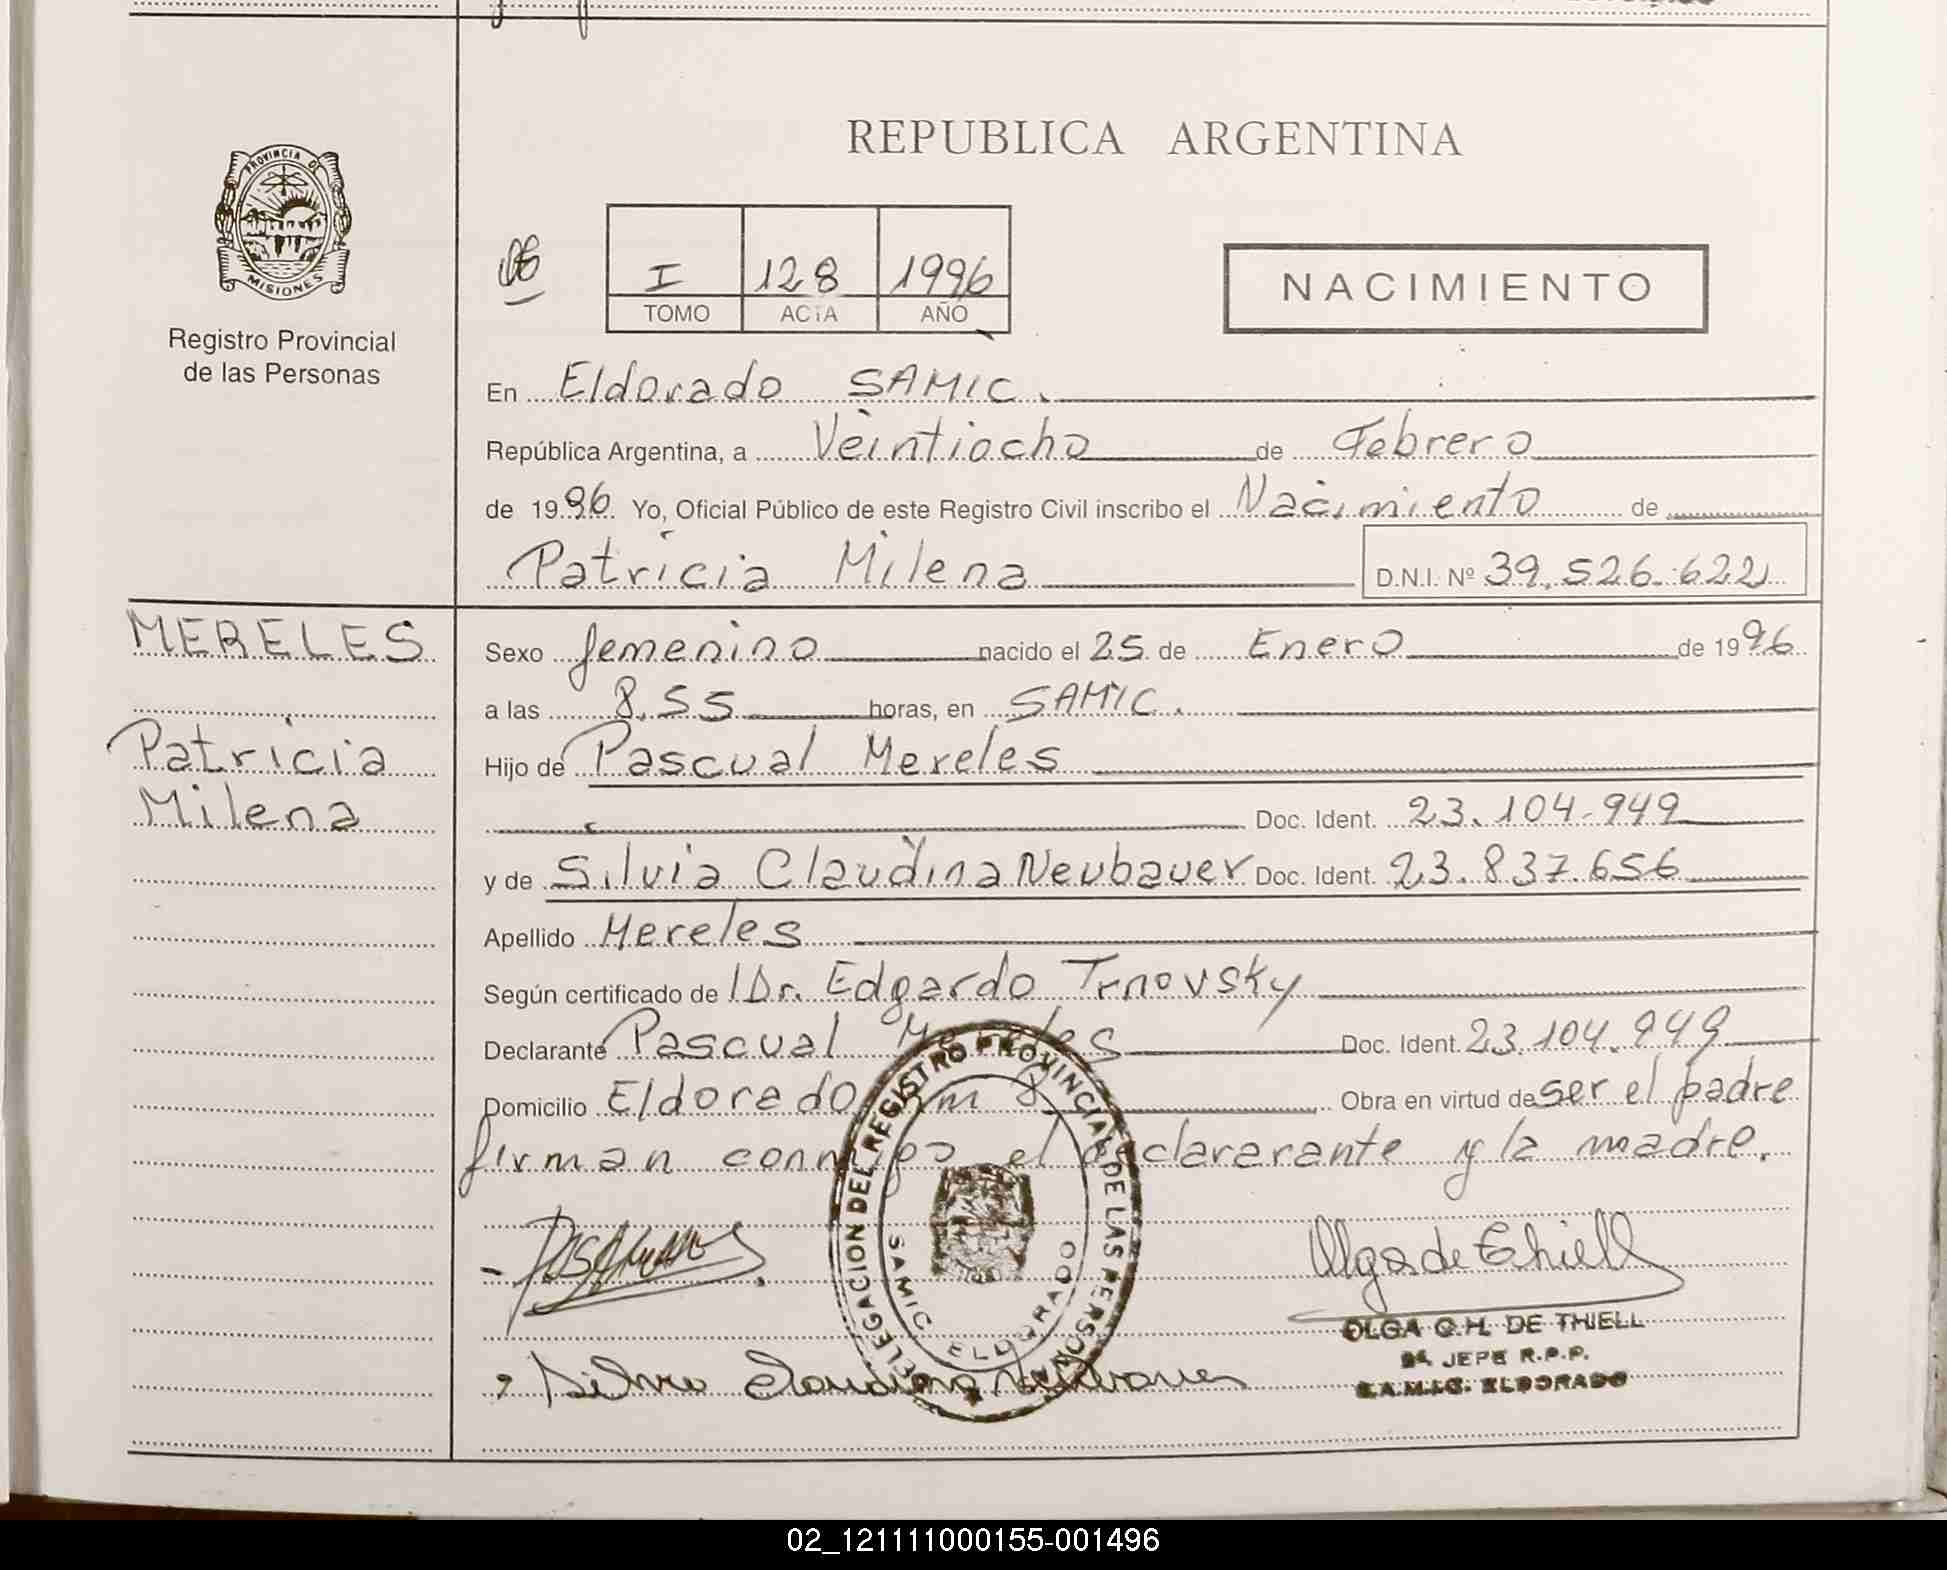 REPUBLICA ARGENTINA
PROVINCIA DE
MISIONES
Registro Provincial
de las Personas
I 128 1996
TOMO ACTA AÑO
NACIMIENTO
En Eldorado SAMIC.
República Argentina, a Veintiocho de Febrero
de 1996 Yo, Oficial Público de este Registro Civil inscribo el Nacimiento de
Patricia Milena D.N.I. Nº 39.526.622
MERELES
Patricia
Milena
Sexo femenino nacido el 25 de Enero de 1996
a las 8.55 horas, en SAMIC.
Hijo de Pascual Mereles
Doc. Ident. 23.104.949
y de Silvia Claudina Neubauer Doc. Ident. 23.837.656
Apellido Mereles
Según certificado de Dr. Edgardo Trnovsky
Declarante Pascual Mereles Doc. Ident. 23.104.949
Domicilio Eldorado Km 8 Obra en virtud de ser el padre
firman conmigo el declararante y la madre.
DELEGACION DEL REGISTRO PROVINCIAL DE LAS PERSONAS
SAMIC ELDORADO
Olga de Thiell
OLGA G.H. DE THIELL
2ª JEFE R.P.P.
S.A.M.I.C. ELDORADO
Silvia Claudina Neubauer
02_121111000155-001496